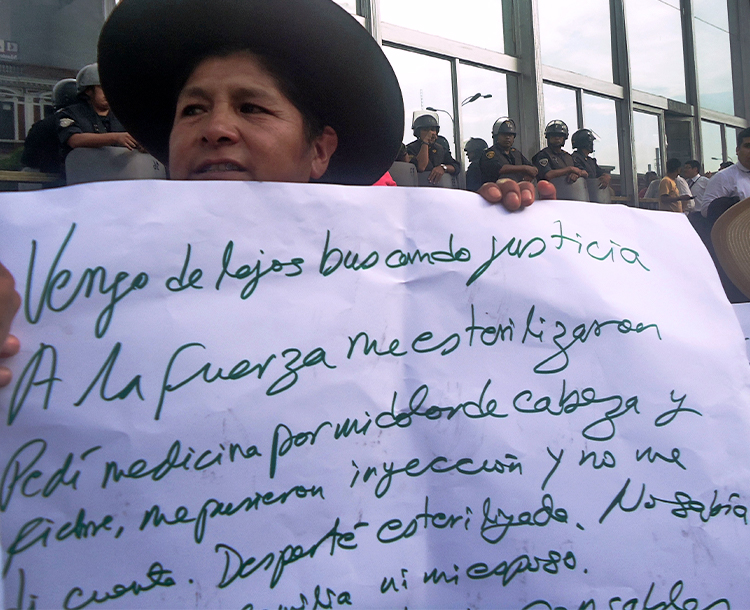 Vengo de lejos buscando justicia
A la fuerza me esterilizaron
Pedí medicina por mi dolor de cabeza y
fiebre, me pusieron inyección y no me
di cuenta. Desperté esterilizada. No sabía
familia ni mi esposo.